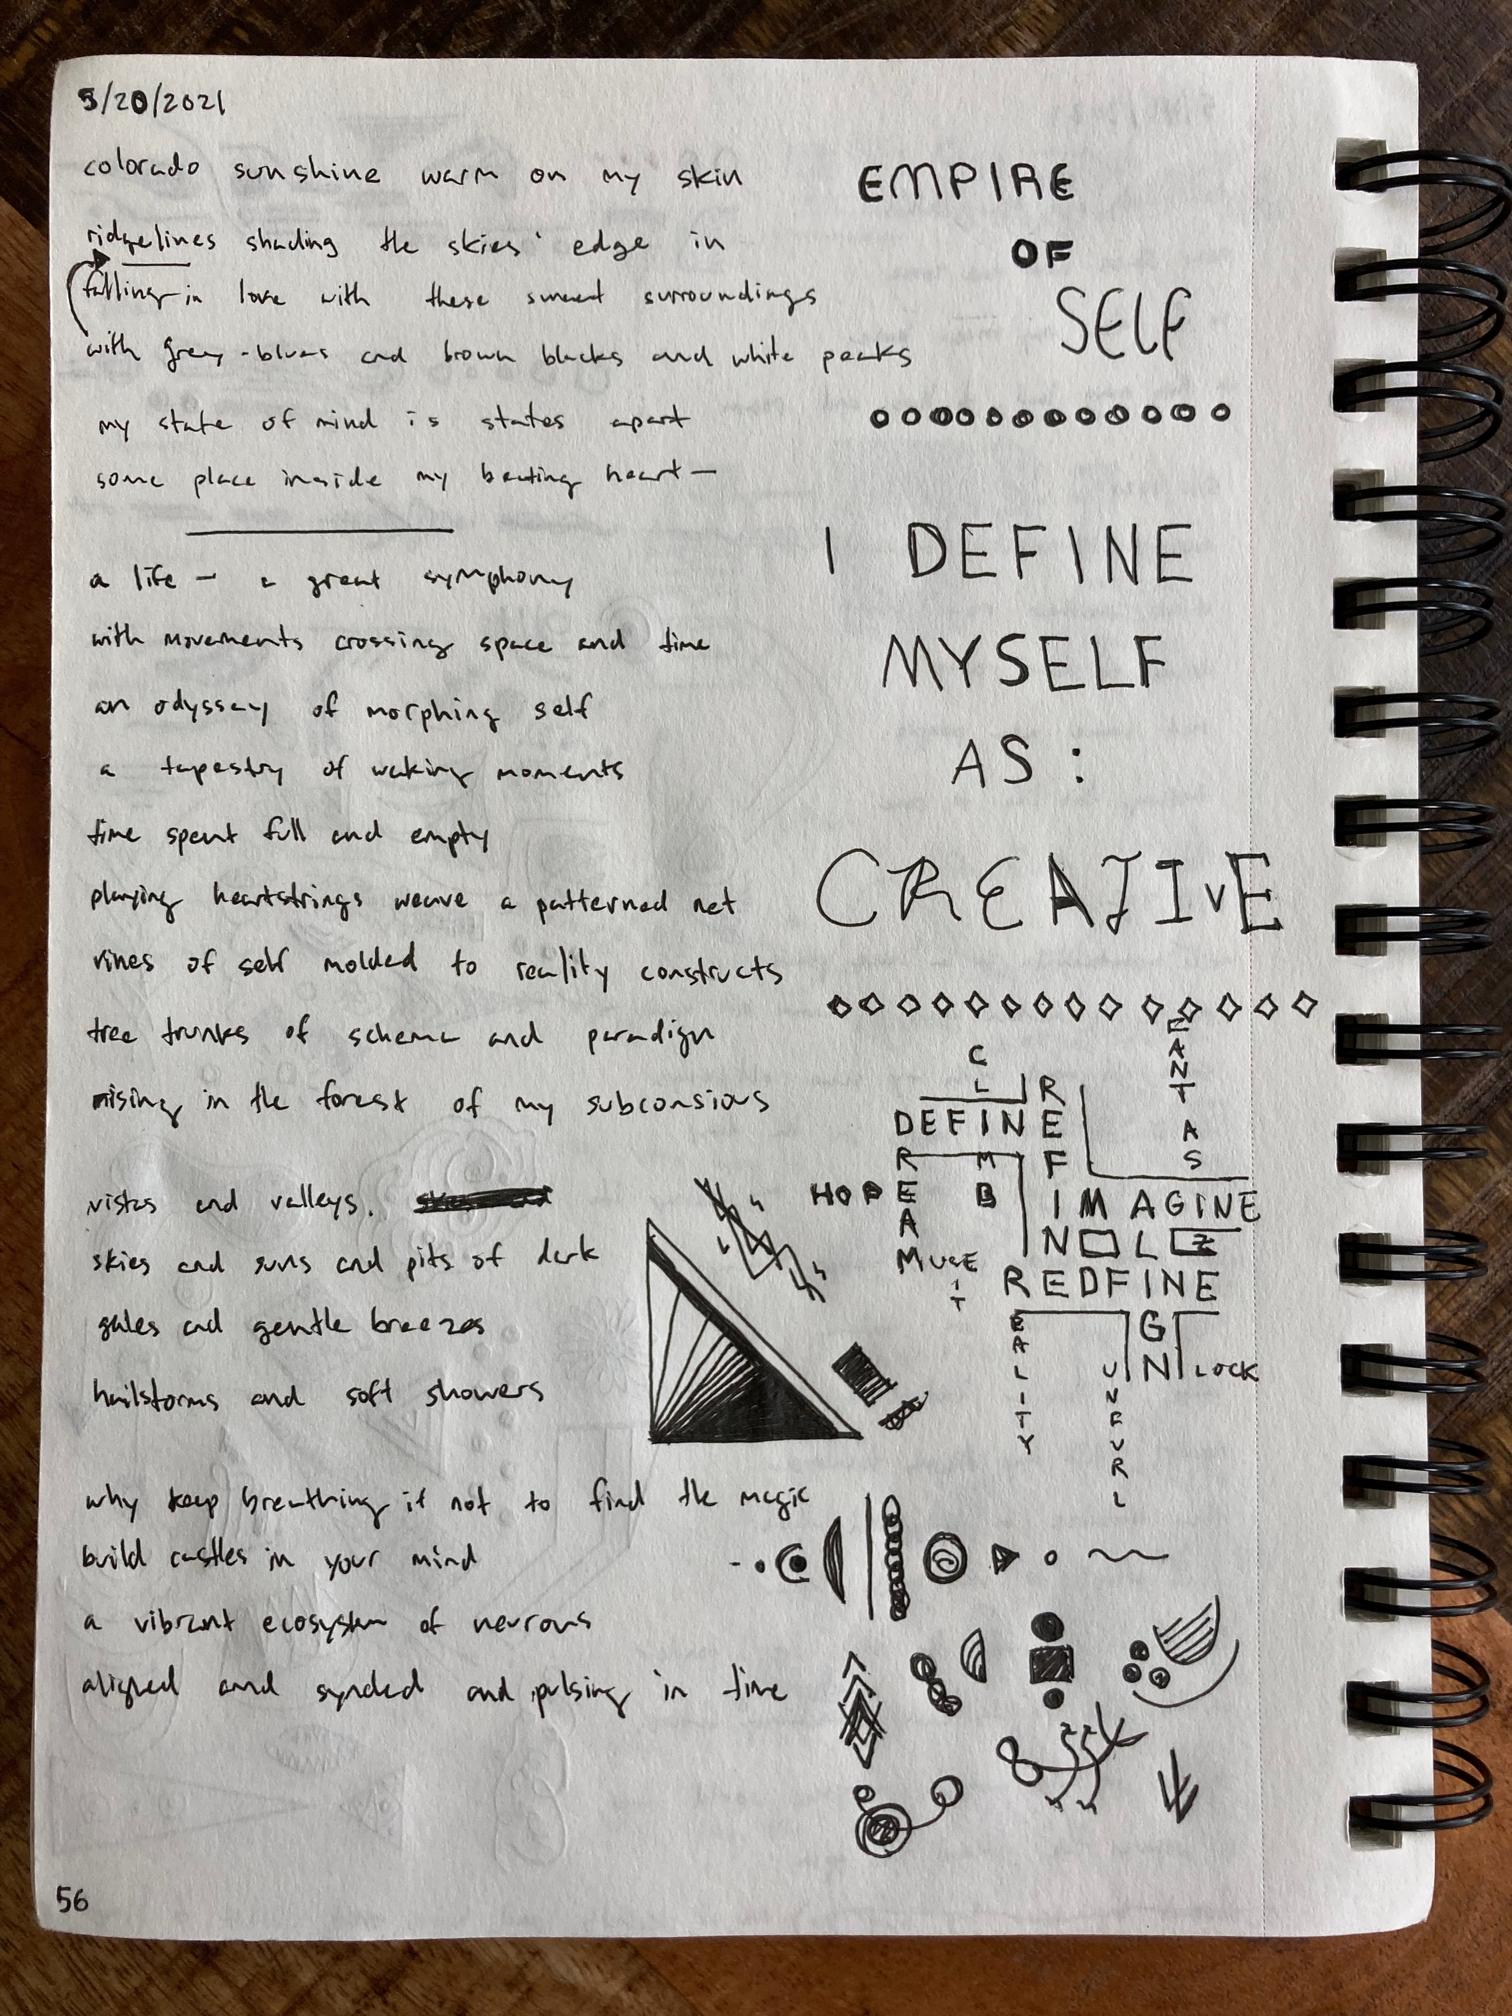 5/20/2021
colorado sunshine warm on my skin
ridgelines shading the skies' edge in
falling in love with these sweet surroundings
with grey-blues and brown blacks and white peaks
my state of mind is states apart
some place inside my beating heart—
a life – a great symphony
with movements crossing space and time
an odyssey of morphing self
a tapestry of waking moments
time spent full and empty
playing heartstrings weave a patterned net
vines of self molded to reality constructs
tree trunks of schema and paradigm
rising in the forest of my subconsious
vistas and valleys.
skies and suns and pits of dark
gales and gentle breezes
hailstorms and soft showers
why keep breathing if not to find the magic
build castles in your mind
a vibrant ecosystem of neurons
aligned and syncled and pulsing in time
56
EMPIRE
OF
SELF
I DEFINE
MYSELF
AS:
CREATIVE
CLIMB
DEFINE
DREAM
REFINE
FANTAS
HOPE
IMAGINE
MUSE
IT
REDFINE
REALITY
UNFURL
LOCK